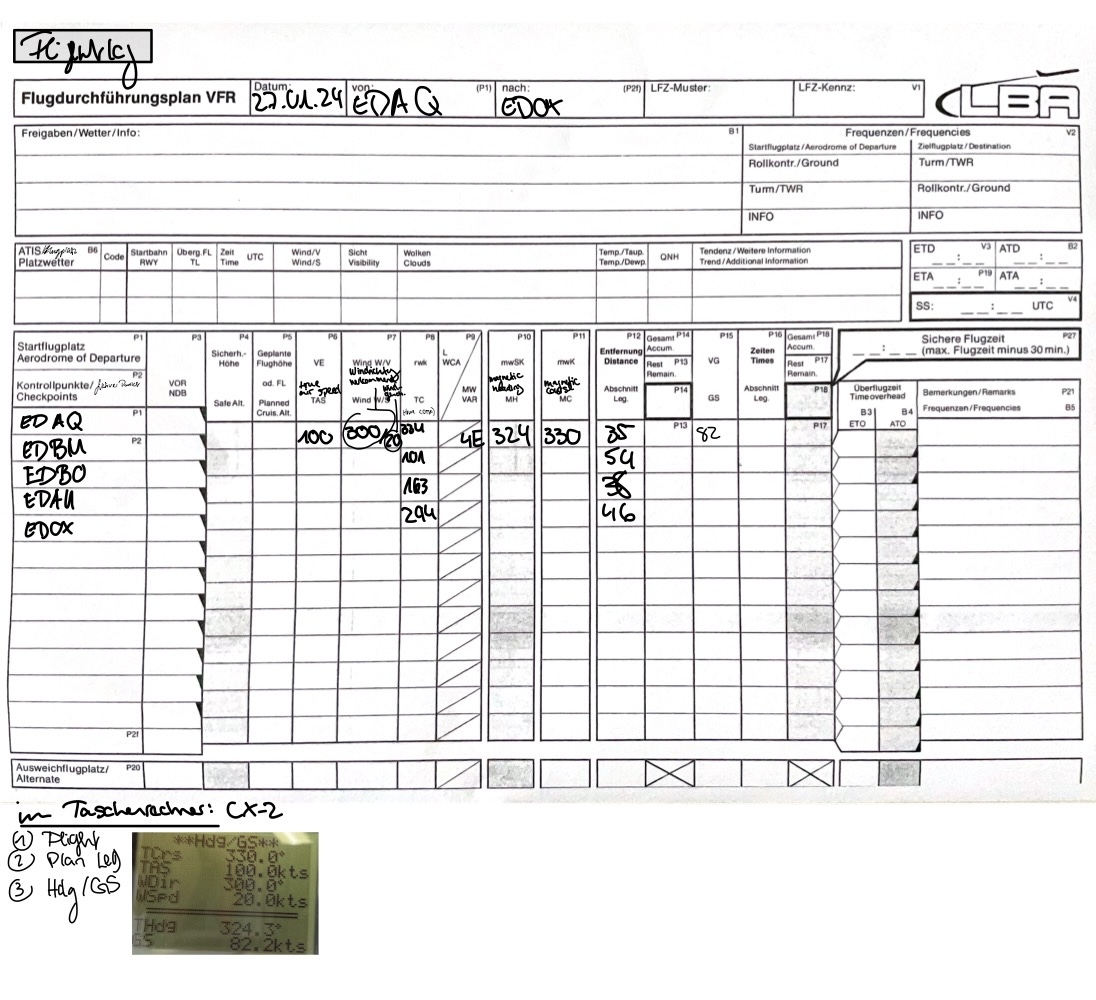 Flightlog
Flugdurchführungsplan VFR
Datum: 27.01.24
von: EDAQ (P1)
nach: EDOX (P2f)
LFZ-Muster:
LFZ-Kennz: V1
LBA
Freigaben/Wetter/Info: B1
Frequenzen/Frequencies V2
Startflugplatz/Aerodrome of Departure
Zielflugplatz/Destination
Rollkontr./Ground
Turm/TWR
Turm/TWR
Rollkontr./Ground
INFO
INFO
ATIS/ B6
Platzwetter
Code
Startbahn
RWY
Überg.FL
TL
Zeit
Time UTC
Wind/V
Wind/S
Sicht
Visibility
Wolken
Clouds
Temp./Taup.
Temp./Dewp.
QNH
Tendenz/Weitere Information
Trend/Additional Information
ETD __:__ V3
ATD __:__ B2
ETA __:__ P19
ATA __:__
SS: __:__ UTC V4
Startflugplatz P1
Aerodrome of Departure
P2
Kontrollpunkte/
Checkpoints
P3
VOR
NDB
P4
Sicherh.-
Höhe
Safe Alt.
P5
Geplante
Flughöhe
od. FL
Planned
Cruis. Alt.
P6
VE
true
air speed
TAS
P7
Wind W/V
Wind W/S
P8
rwk
TC
P9
L
WCA
MW
VAR
P10
mwSK
magnetic
heading
MH
P11
mwK
magnetic
course
MC
P12
Entfernung
Distance
Abschnitt
Leg.
Gesamt P14
Accum.
P13
Rest
Remain.
P14
P13
P15
VG
GS
P16
Zeiten
Times
Abschnitt
Leg.
Gesamt P18
Accum.
P17
Rest
Remain.
P18
P17
__:__ Sichere Flugzeit P27
(max. Flugzeit minus 30 min.)
Überflugzeit
Time overhead
B3 B4
ETO ATO
Bemerkungen/Remarks P21
Frequenzen/Frequencies B5
EDAQ P1
EDBM P2 100 300/20 334 4E 324 330 35 82
EDBO 101 54
EDAU 163 38
EDOX 294 46
P2f
Ausweichflugplatz/ P20
Alternate
im Taschenrechner: CX-2
① Flight
② Plan Leg
③ Hdg/GS
**Hdg/GS**
TCrs 330.0°
TAS 100.0kts
WDir 300.0°
WSpd 20.0kts
THdg 324.3°
GS 82.2kts